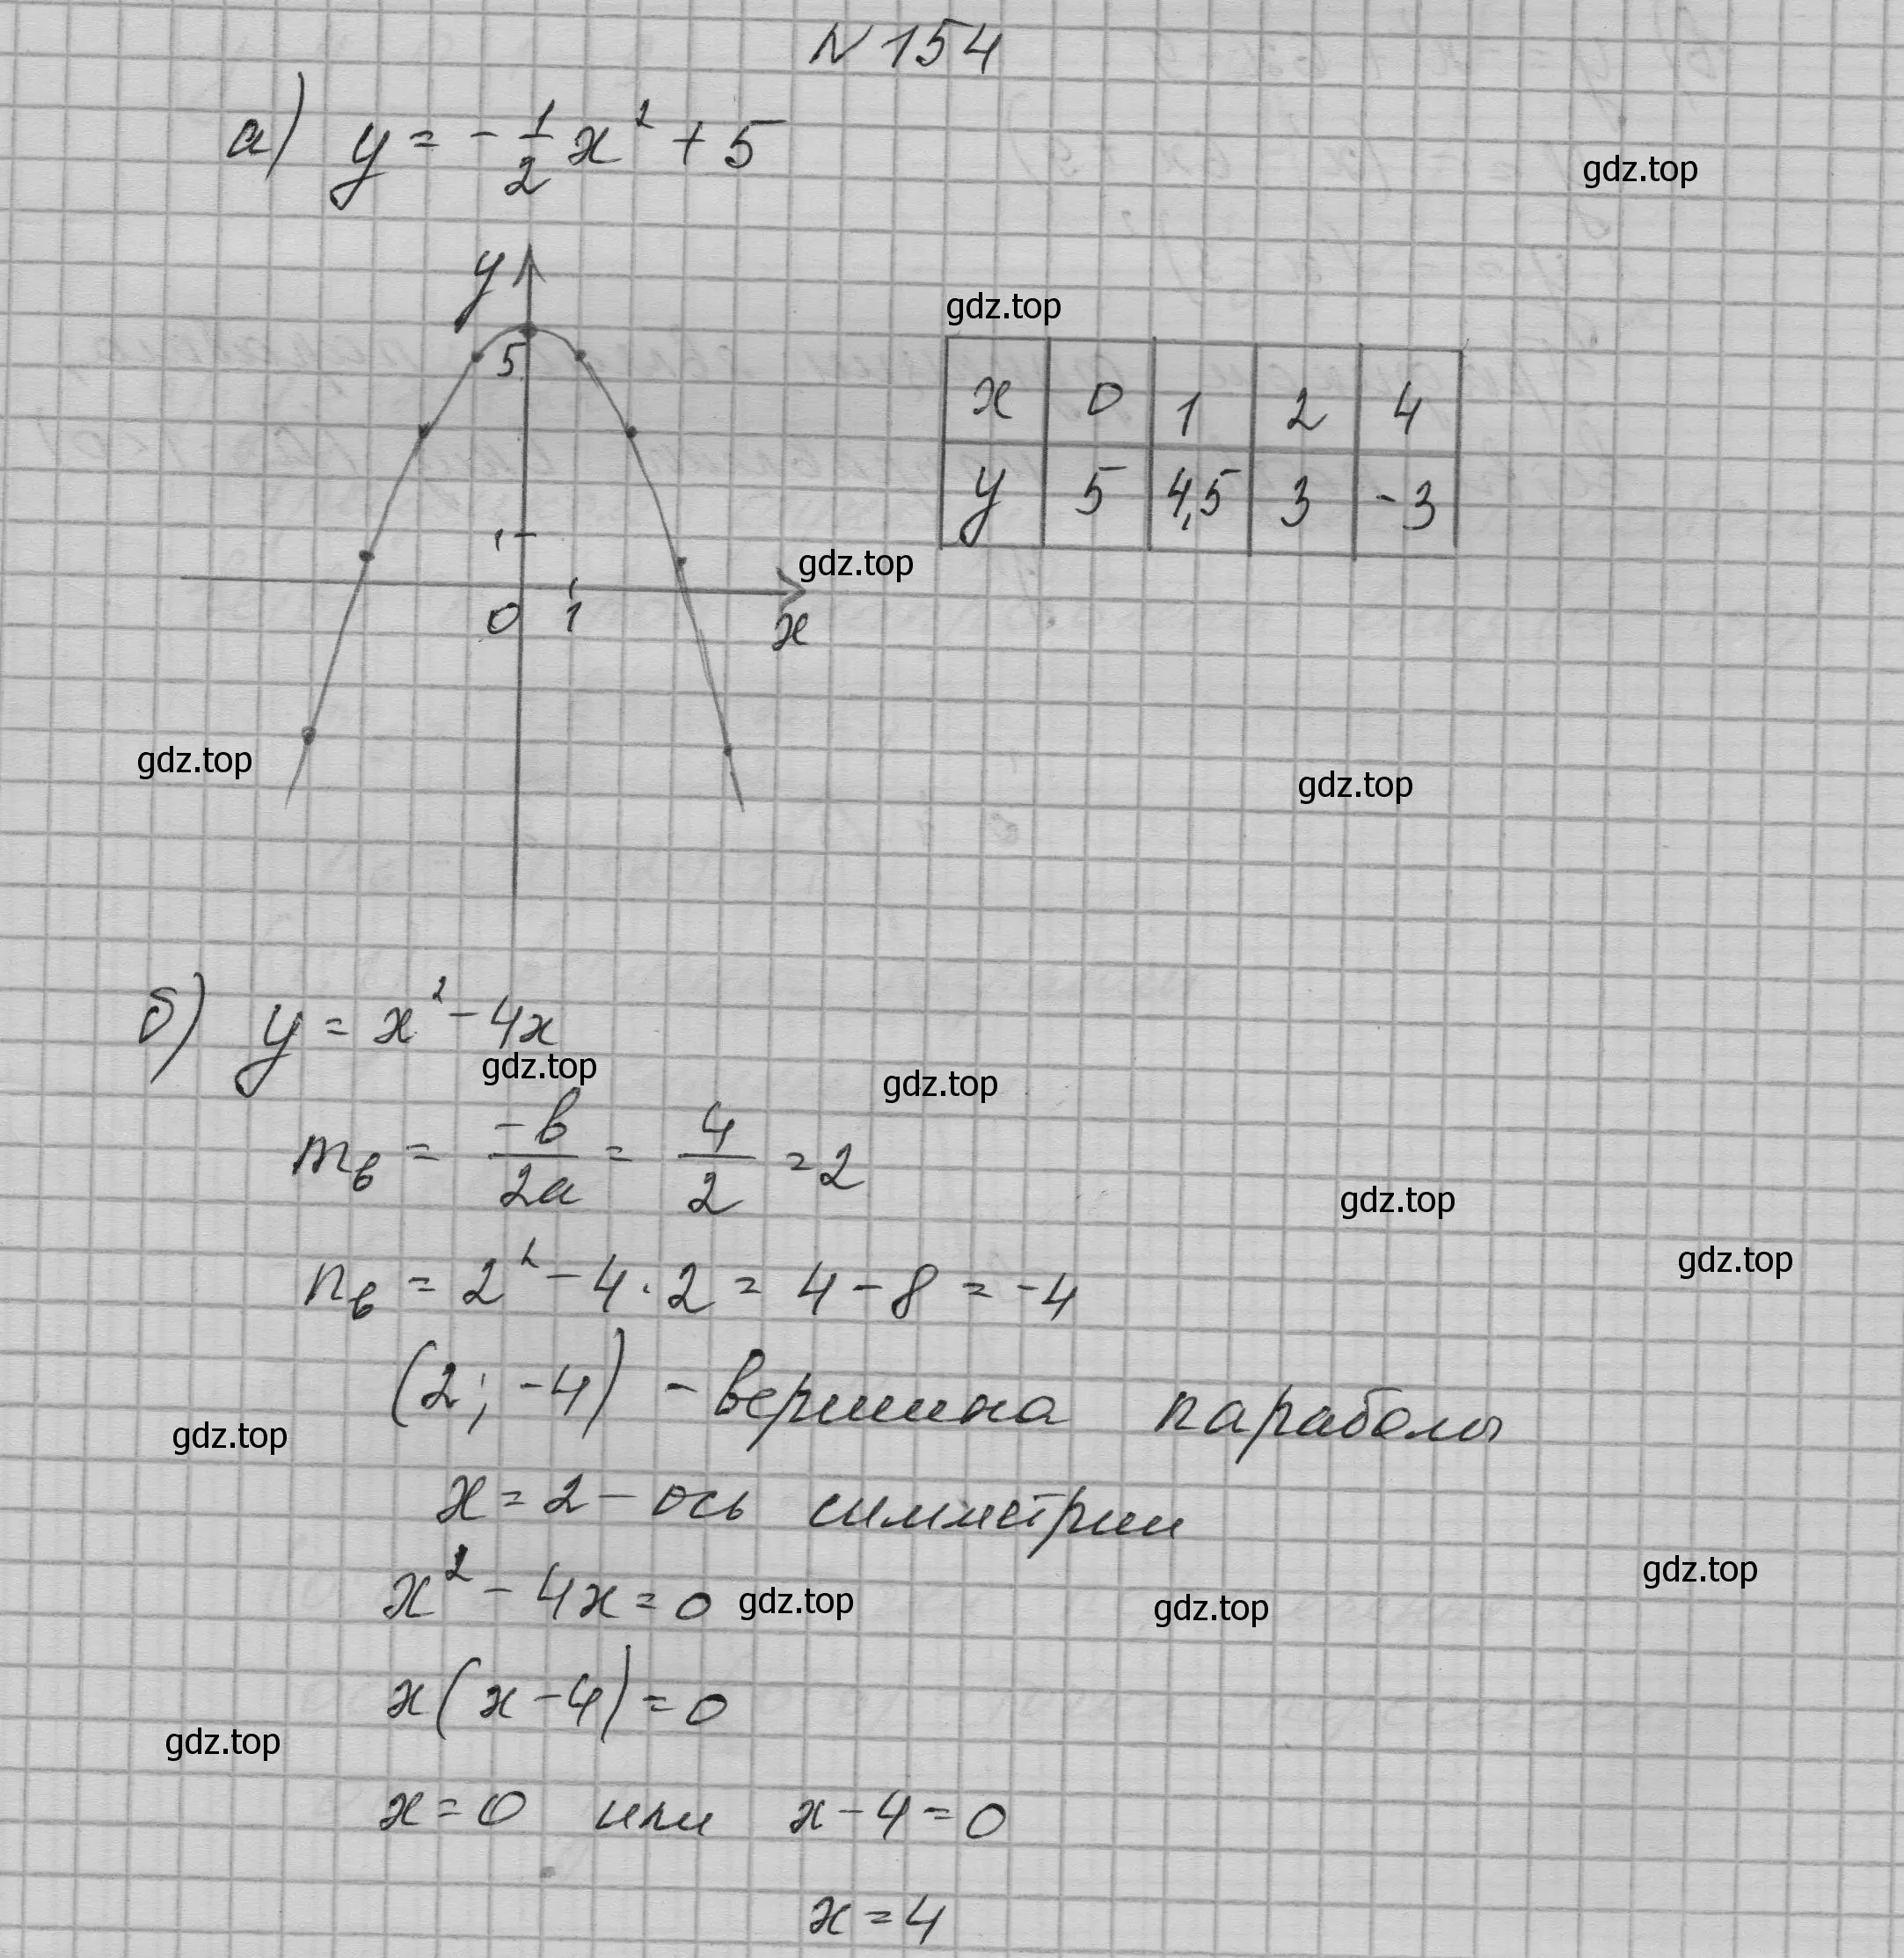 N 154
а) y = - 1/2 x² + 5
gdz.top
y
5
1
0 1
x
gdz.top
x 0 1 2 4
y 5 4,5 3 -3
gdz.top
gdz.top
gdz.top
б) y = x² - 4x
gdz.top
gdz.top
mв = -в/2a = 4/2 = 2
gdz.top
gdz.top
nв = 2² - 4 · 2 = 4 - 8 = -4
(2; -4) - вершина параболы
gdz.top
x = 2 - ось симметрии
x² - 4x = 0
gdz.top
gdz.top
gdz.top
x(x - 4) = 0
gdz.top
x = 0 или x - 4 = 0
x = 4